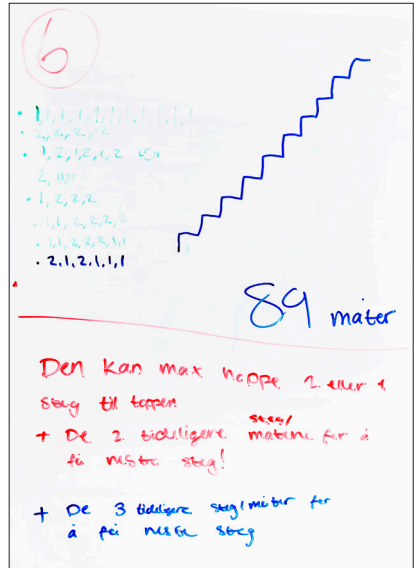 6
1,1,1,1,1,1,1,1,1,1
2,2,2,2,2
1,2,1,2,1,2
2,
1,2,2,2
1,1,2,2,2,2
1,1,2,2,2,1,1
2,1,2,1,1,1
89 måter
Den kan max hoppe 2 eller 1
steg til toppen
steg/
+ De 2 tidligere måtene for å
få neste steg!
+ De 3 tidligere steg/måter for
å få neste steg